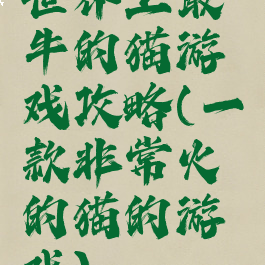 世界上最
牛的猫游
戏攻略(一
款非常火
的猫的游
戏)